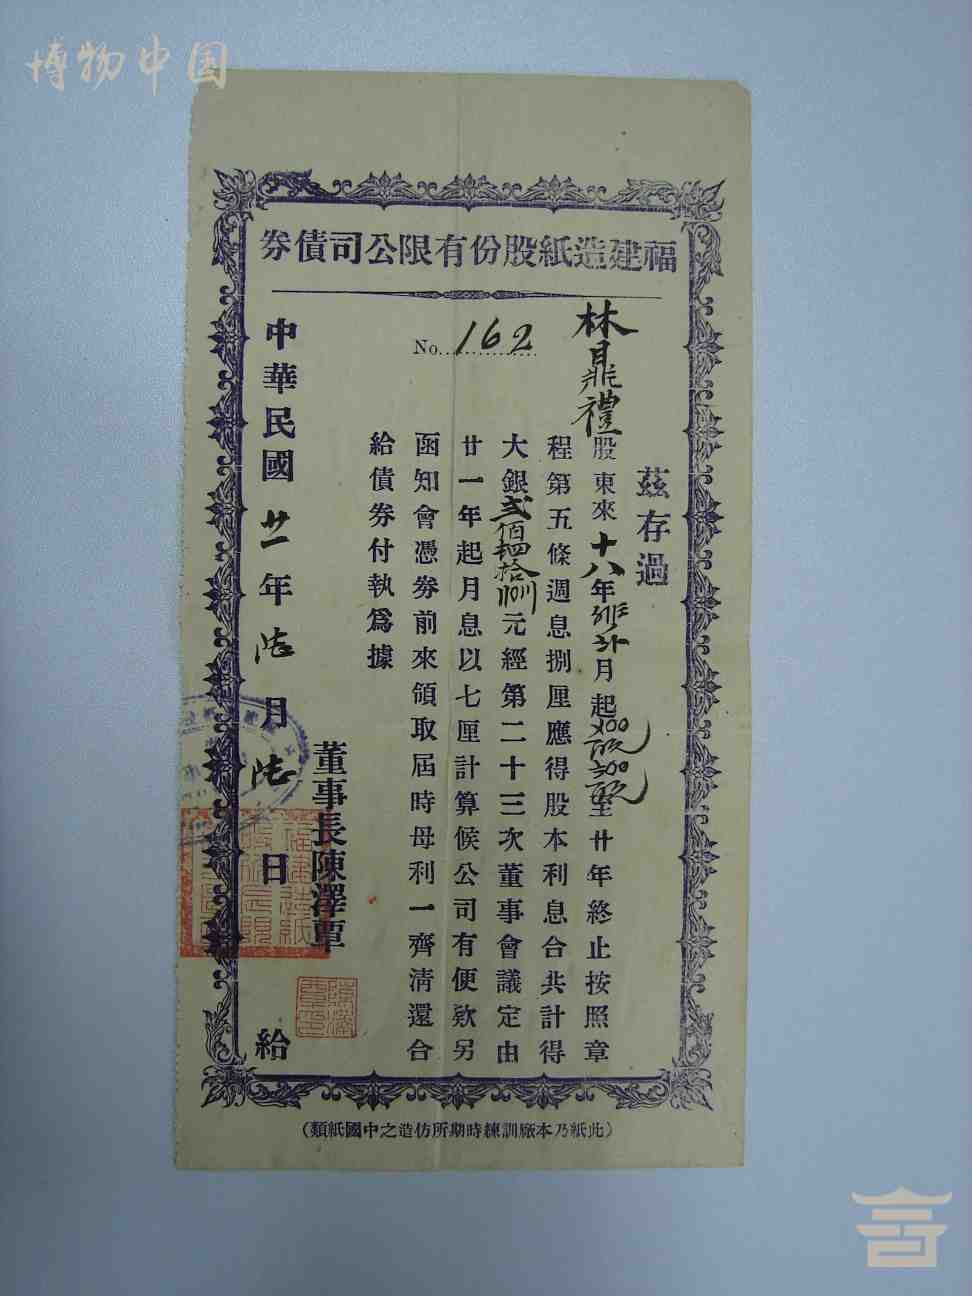 博物中国
福建造紙股份有限公司債券
茲存過
林鼎禮股東來十八年 月起 至廿年終止按照章
程第五條週息捌厘應得股本利息合共計得
大銀貳佰 拾 元經第二十三次董事會議定由
廿一年起月息以七厘計算候公司有便欵另
函知會憑券前來領取屆時母利一齊清還合
給債券付執爲據
No. 162
董事長陳澤覃
中華民國廿一年陆月陆日給
(此紙乃本廠訓練時期所仿造之中國紙類)